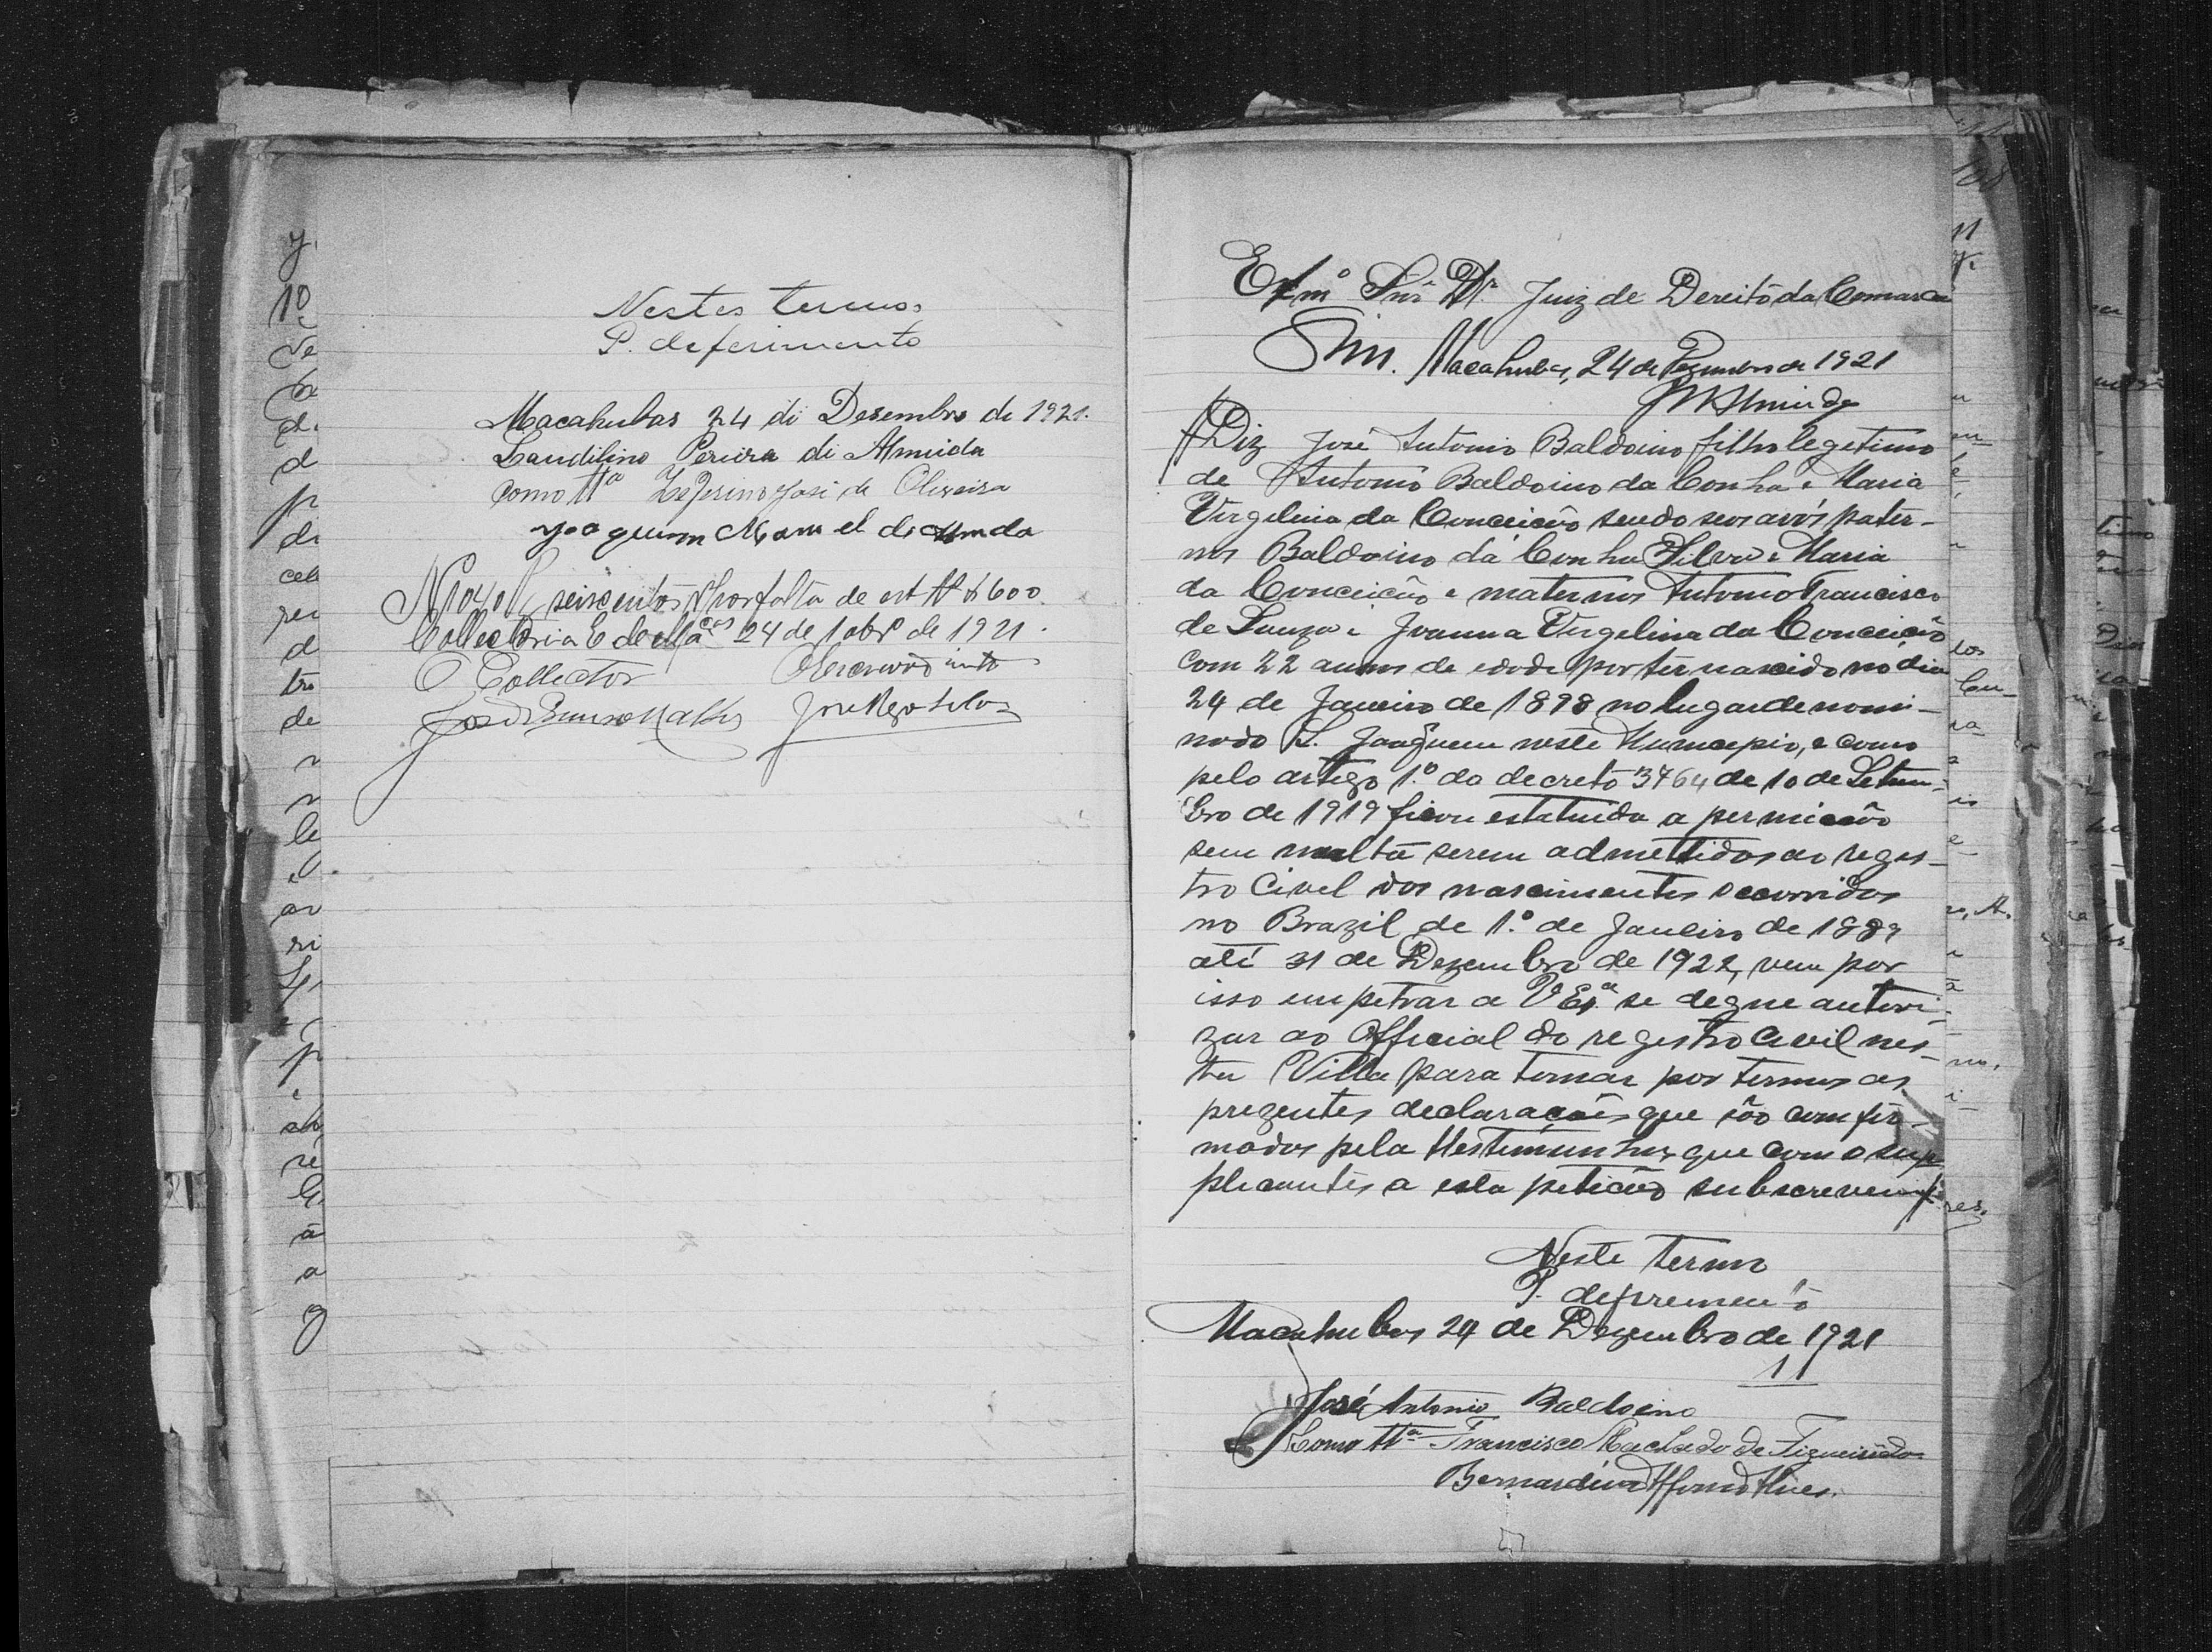 Nestes termos
P. deferimento
Macahubas 24 di Desembro de 1921.
Laudilino Pereira di Almeida
como ttª Zeferino José de Oliveira
Joaquim Manoel de
seiscentos por falta de est $600
Collectoria E de 24 de 10brº de 1921.
O Collector O Escrivão intº
José
Exmº Snr Dr. Juiz de Dereito da Comarca
Sim. Macahubas, 24 de Dezembro de 1921
Almeida
Diz José Antonio Baldoino filho legetimo
de Antonio Baldoino da Conha e Maria
Virgelina da Conceição sendo seos avós pater-
nos Baldoino da Conha Silva e Maria
da Conceição e maternos Antonio Francisco
de Souza e Joanna Virgelina da Conceição
com 22 annos de edade por ter nascido no dia
24 de Janeiro de 1898 no lugar denomi-
nado S. Joaquem neste Municepio, e como
pelo artego 1.º do decreto 3764 de 10 de Setem-
bro de 1919 ficou estatuida a permicão
sem multa serem admettidos ao reges-
tro Civel dos nascimentos occorridos
no Brazil de 1.º de Janeiro de 1889
até 31 de Dezembro de 1922, vem por
isso impetrar a V Exª se degne autori-
zar ao Official do registro Civil nes-
ta Villa para tomar por termos as
prezentes declaracões que são comfir-
mados pela ttestimunhas que com o sup
plicantes a esta petição subscrevem
Neste termo
P. deferemento
Macahubas 24 de Dezembro de 1921
José Antonio Baldoino
Como ttª Francisco Machado de Figueirêdo
Bernardino Affonso Alves.